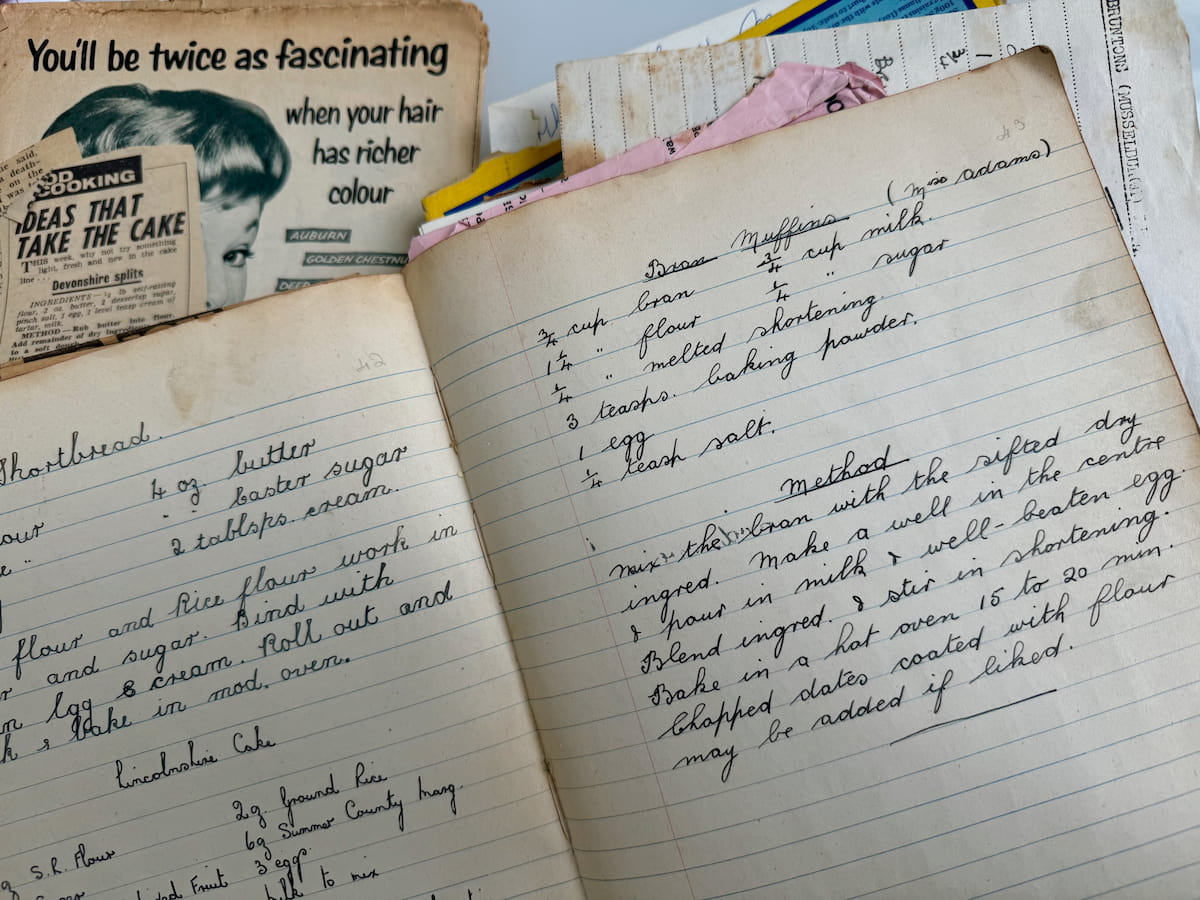 You'll be twice as fascinating
when your hair
has richer
colour
AUBURN
GOLDEN CHESTNU
DEEP
COOKING
IDEAS THAT
TAKE THE CAKE
THIS week, why not try something
light, fresh and new in the cake
line . . .
Devonshire splits
INGREDIENTS—½ lb self-raising
flour, 2 oz. butter, 2 dessertsp sugar,
pinch salt, 1 egg, 1 level teasp cream of
tartar, milk.
METHOD—Rub butter into flour.
Add remainder of dry ingredients
to a soft
BRUNTONS (MUSSELBURGH)
42
Shortbread.
4 oz. butter
our " " Caster sugar
2 tablsps. cream.
flour and Rice flour work in
and sugar. Bind with
Egg & cream. Roll out and
& bake in mod. oven.
Lincolnshire Cake
2oz. Ground Rice
S.R. Flour 6oz Summer County Marg.
Fruit 3 eggs.
milk to mix
43
Bran Muffins (Miss Adams)
3/4 cup bran 3/4 cup milk.
1 1/4 " flour 1/4 " sugar
1/4 " melted shortening.
3 teasps. baking powder.
1 egg
1/4 teasp salt.
Method
Mix the bran with the sifted dry
ingred. Make a well in the centre
& pour in milk & well-beaten egg.
Blend ingred. & stir in shortening.
Bake in a hot oven 15 to 20 min.
Chopped dates coated with flour
may be added if liked.